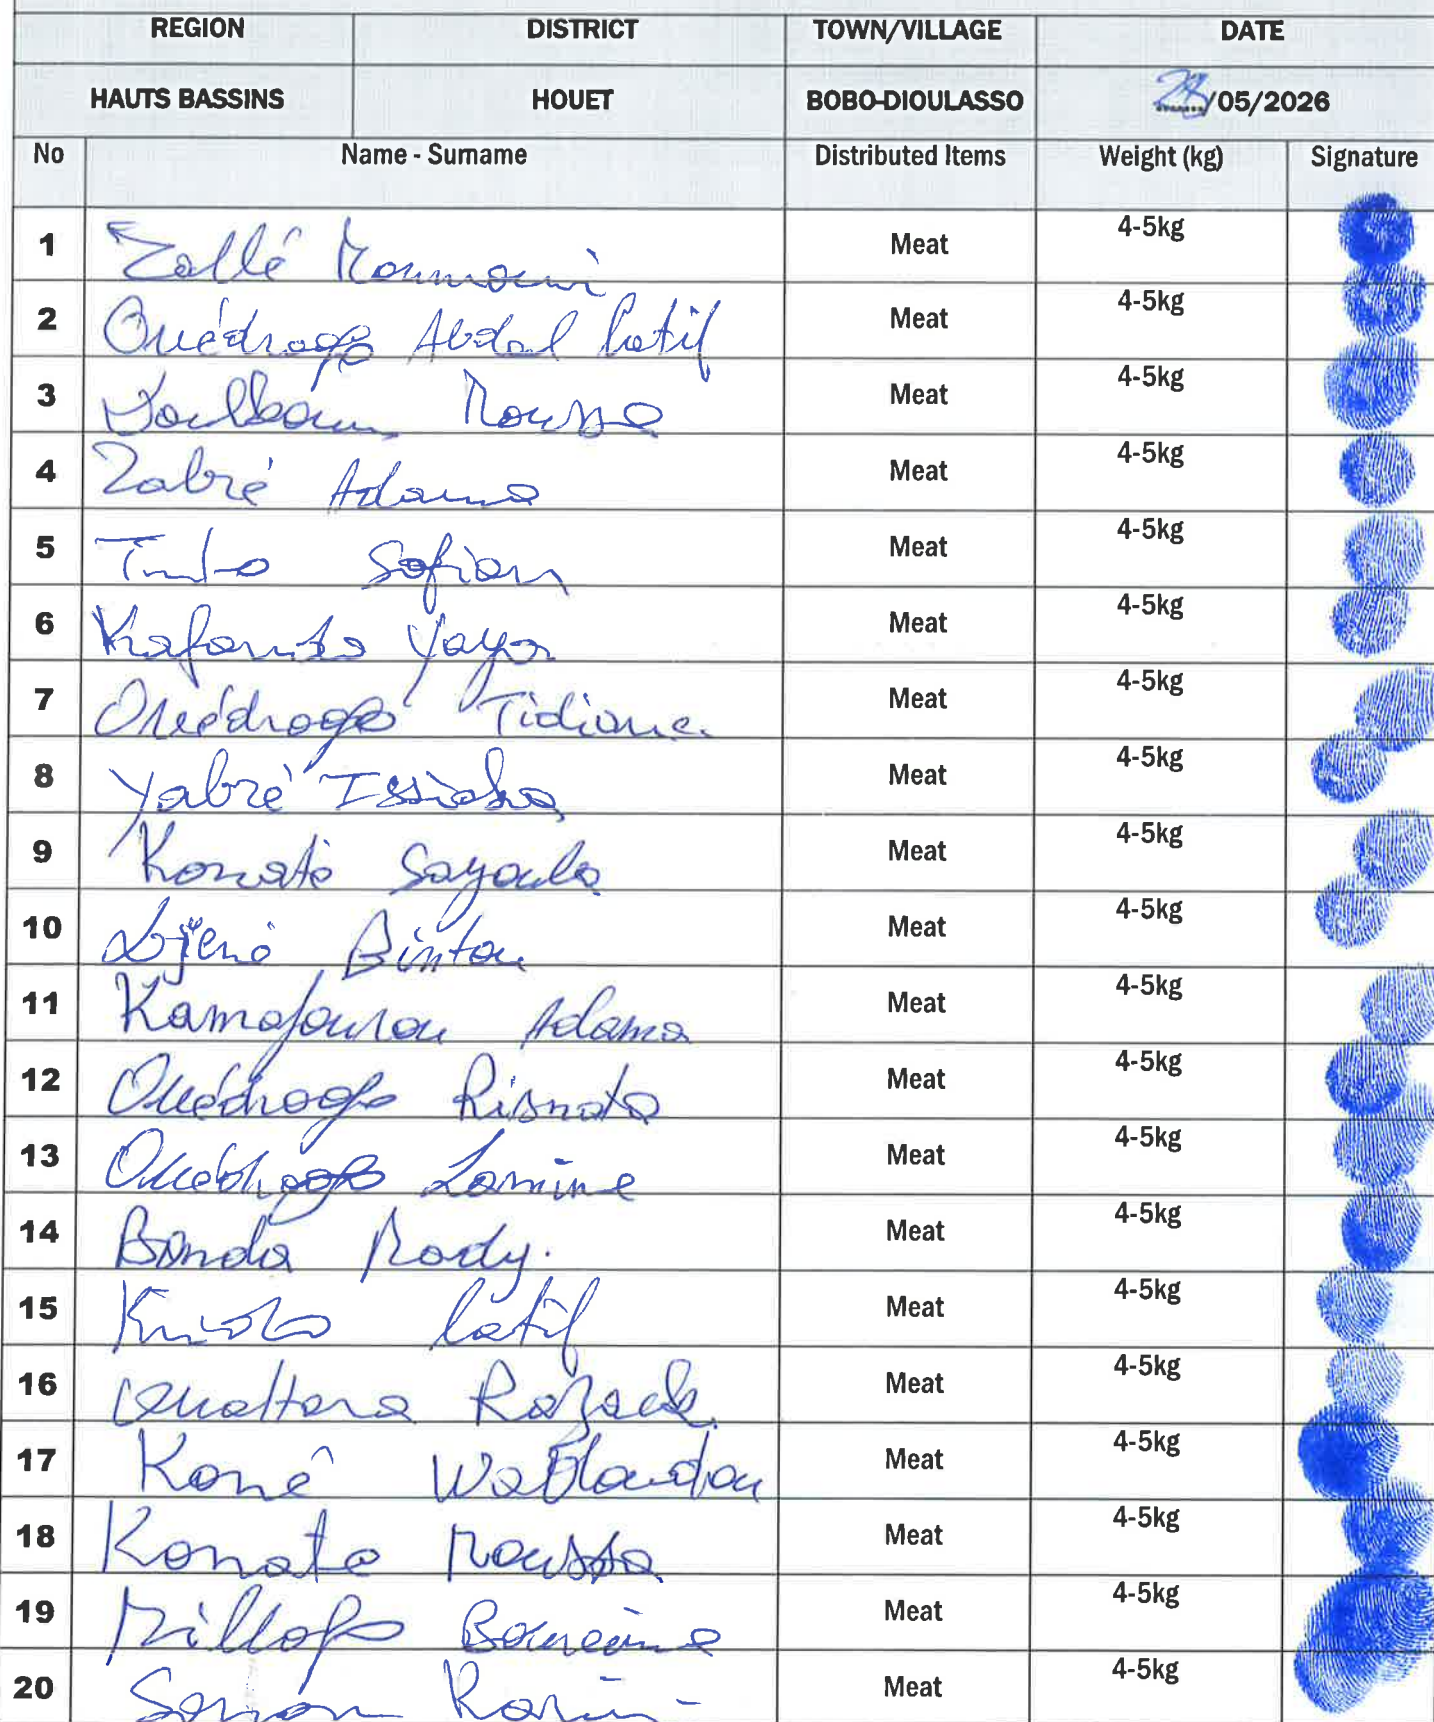 REGION DISTRICT TOWN/VILLAGE DATE
HAUTS BASSINS HOUET BOBO-DIOULASSO 28/05/2026
No Name - Surname Distributed Items Weight (kg) Signature
1 Zallé Moumouni Meat 4-5kg
2 Ouédraogo Abdoul Latif Meat 4-5kg
3 Moussa Meat 4-5kg
4 Zabré Adama Meat 4-5kg
5 Sofian Meat 4-5kg
6 Kafando Yaya Meat 4-5kg
7 Ouédraogo Tidiane Meat 4-5kg
8 Yabré Issiaka Meat 4-5kg
9 Konaté Sayouba Meat 4-5kg
10 Bintou Meat 4-5kg
11 Kamafourou Adama Meat 4-5kg
12 Ouédraogo Risnata Meat 4-5kg
13 Ouédraogo Lamine Meat 4-5kg
14 Banda Mody. Meat 4-5kg
15 Latif Meat 4-5kg
16 Ouattara Razack Meat 4-5kg
17 Koné Meat 4-5kg
18 Konate Moussa Meat 4-5kg
19 Millogo Meat 4-5kg
20 Meat 4-5kg